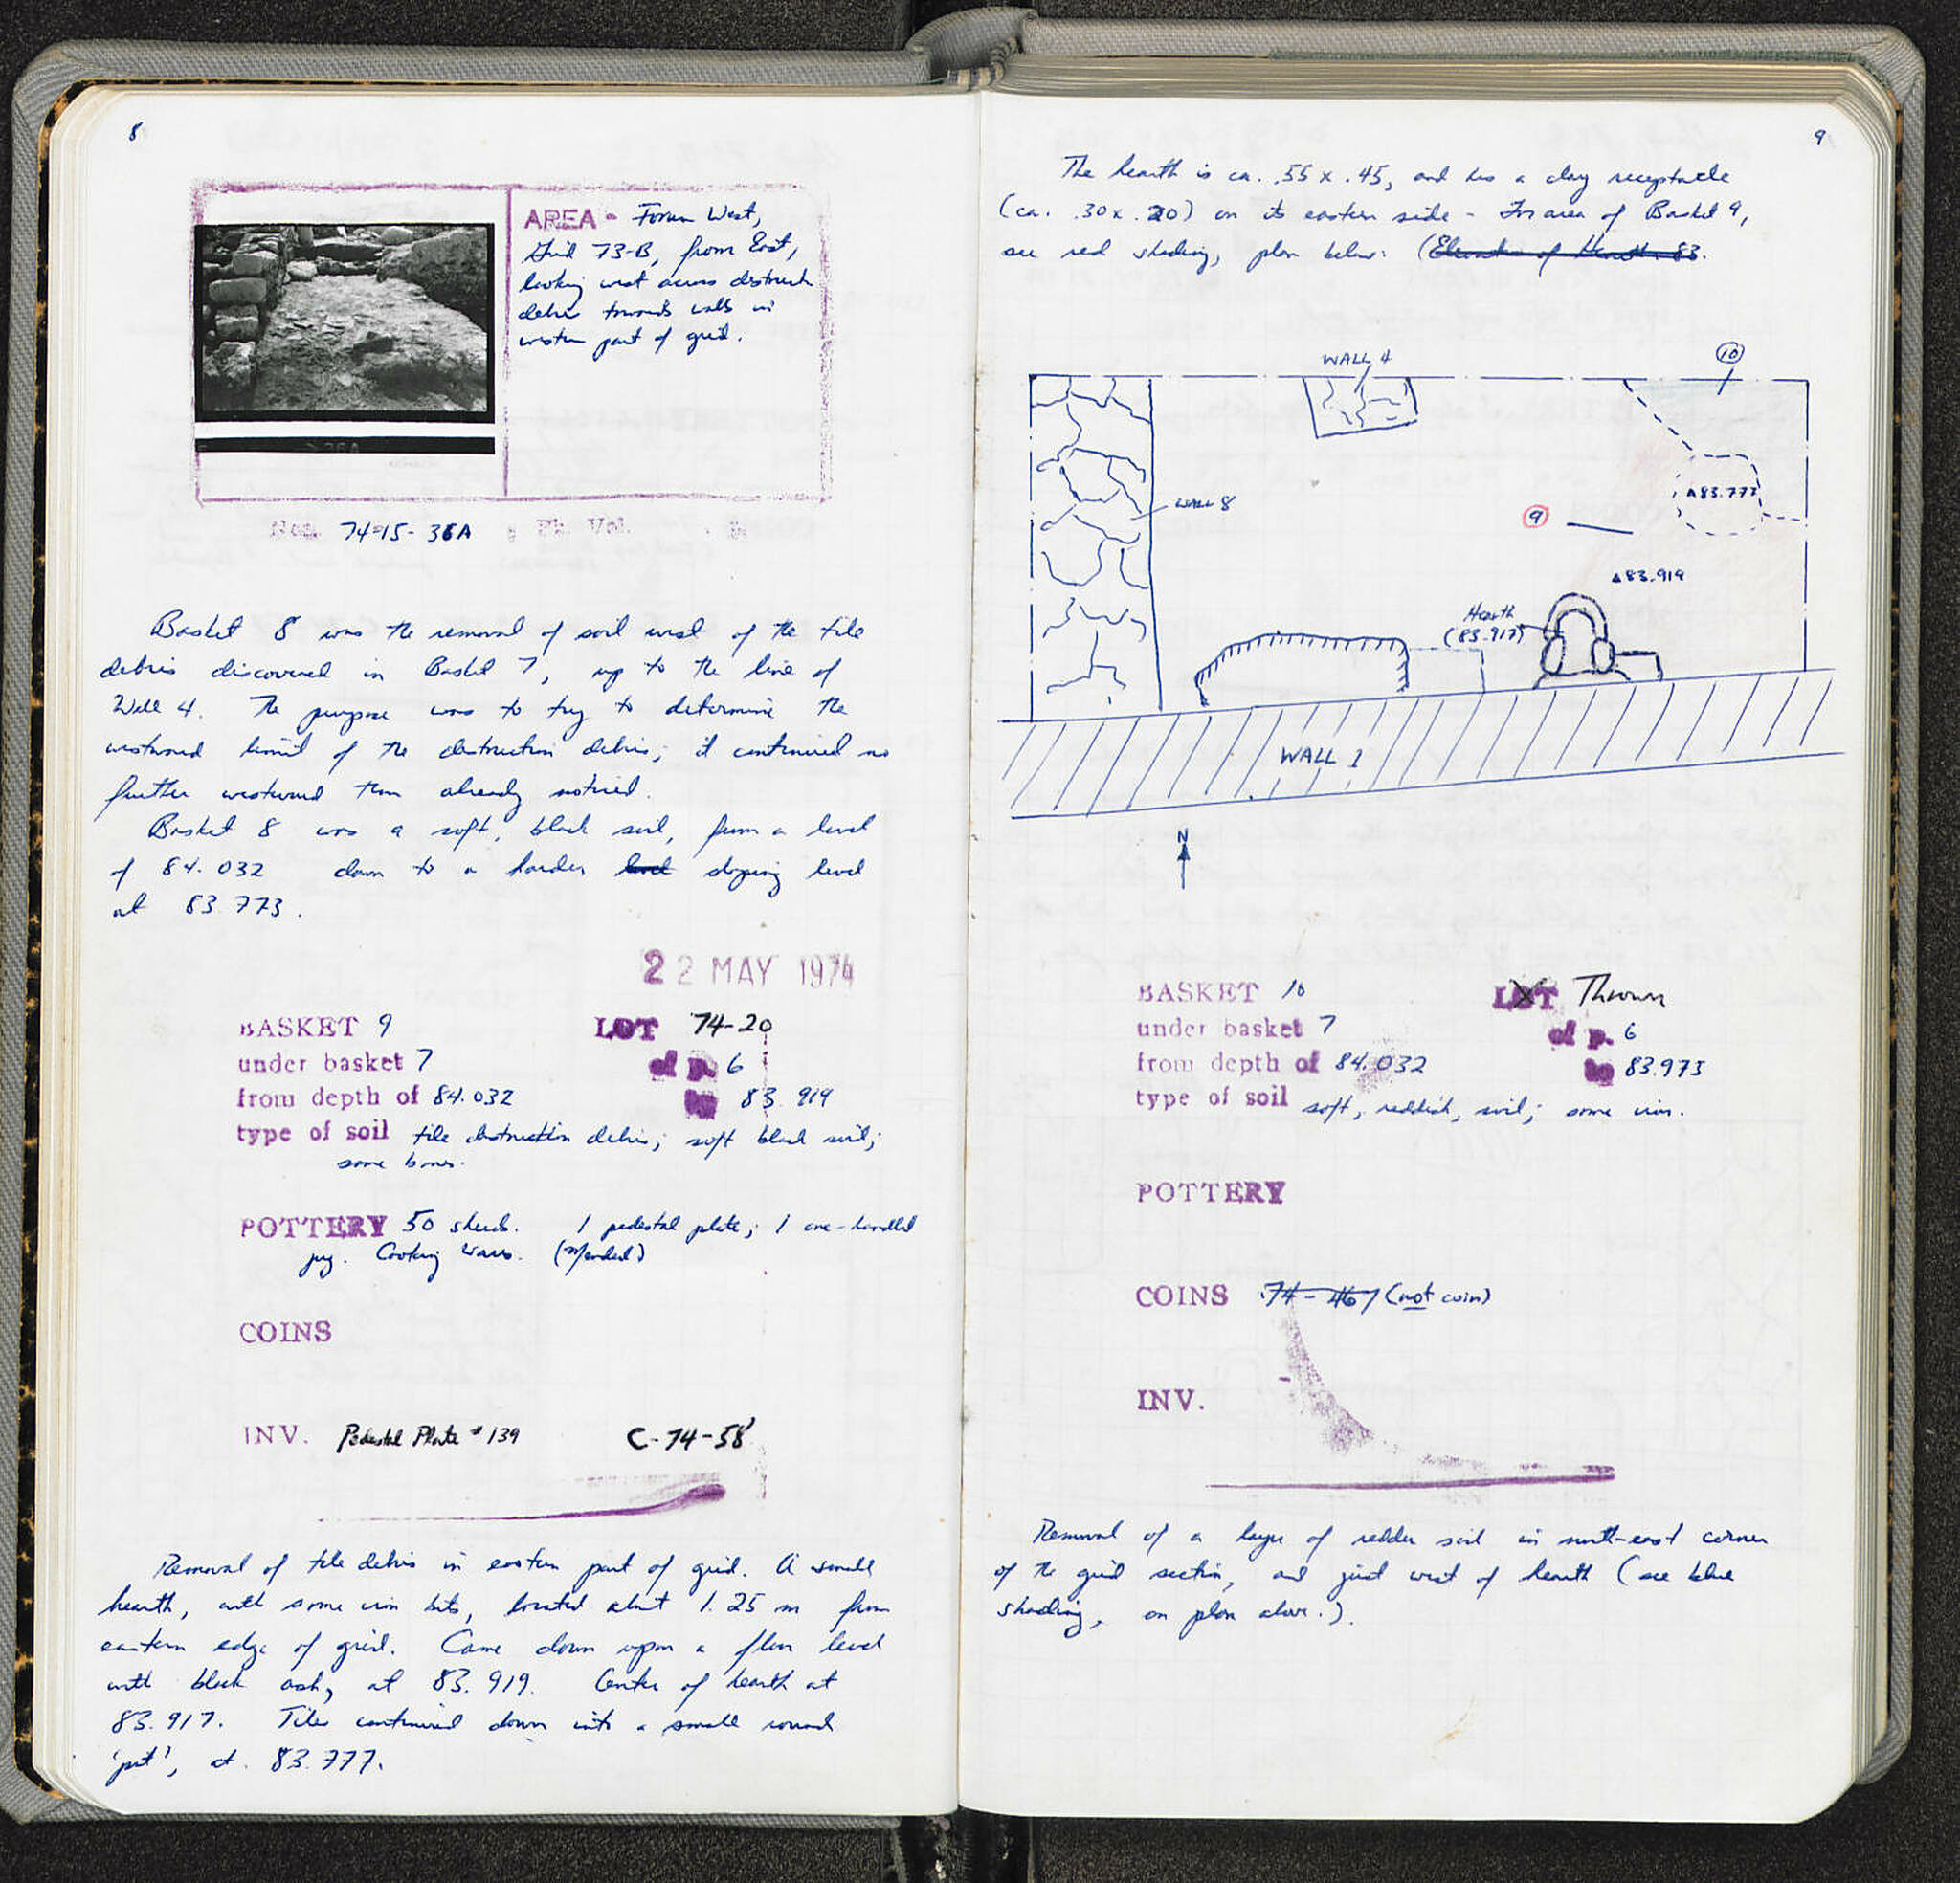 8
AREA - Forum West,
Grid 73-B, from East,
looking west across destruct.
debris towards walls in
western part of grid.
Neg. 74-15-36A ; Ph. Vol. p.
Basket 8 was the removal of soil west of the tile
debris discovered in Basket 7, up to the line of
Wall 4. The purpose was to try to determine the
westward limit of the destruction debris; it continued no
further westward than already noticed.
Basket 8 was a soft, black soil, from a level
of 84.032 down to a harder level sloping level
at 83.773.
22 MAY 1974
BASKET 9 LOT 74-20
under basket 7 of p. 6
from depth of 84.032 to 83.919
type of soil tile destruction debris; soft black soil;
some bones.
POTTERY 50 sherds. 1 pedestal plate; 1 one-handled
jug. Cooking wares. (Mended)
COINS
INV. Pedestal Plate #139 C-74-58
Removal of tile debris in eastern part of grid. A small
hearth, with some iron bits, located about 1.25 m from
eastern edge of grid. Came down upon a floor level
with black ash, at 83.919. Center of hearth at
83.917. Tiles continued down into a small round
'pit', at 83.777.
9
The hearth is ca. .55 x .45, and has a clay receptacle
(ca. .30 x .20) on its eastern side - For area of Basket 9,
see red shading, plan below: (Elevation of Hearth 83.
WALL 4
10
WALL 8
▲83.777
9
▲83.919
Hearth
(83.917)
WALL 1
N
BASKET 10 LOT Thrown
under basket 7 of p. 6
from depth of 84.032 to 83.973
type of soil soft, reddish, soil; some iron.
POTTERY
COINS 74-467 (not coin)
INV.
Removal of a layer of redder soil in north-east corner
of the grid section, and just west of hearth (see blue
shading, on plan above.).